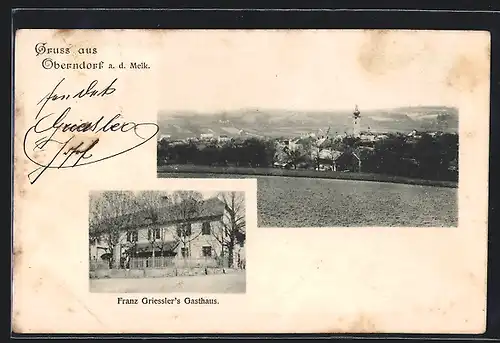 Gruss aus
Oberndorf a. d. Melk.
sendet
Griessler
Franz Griessler's Gasthaus.